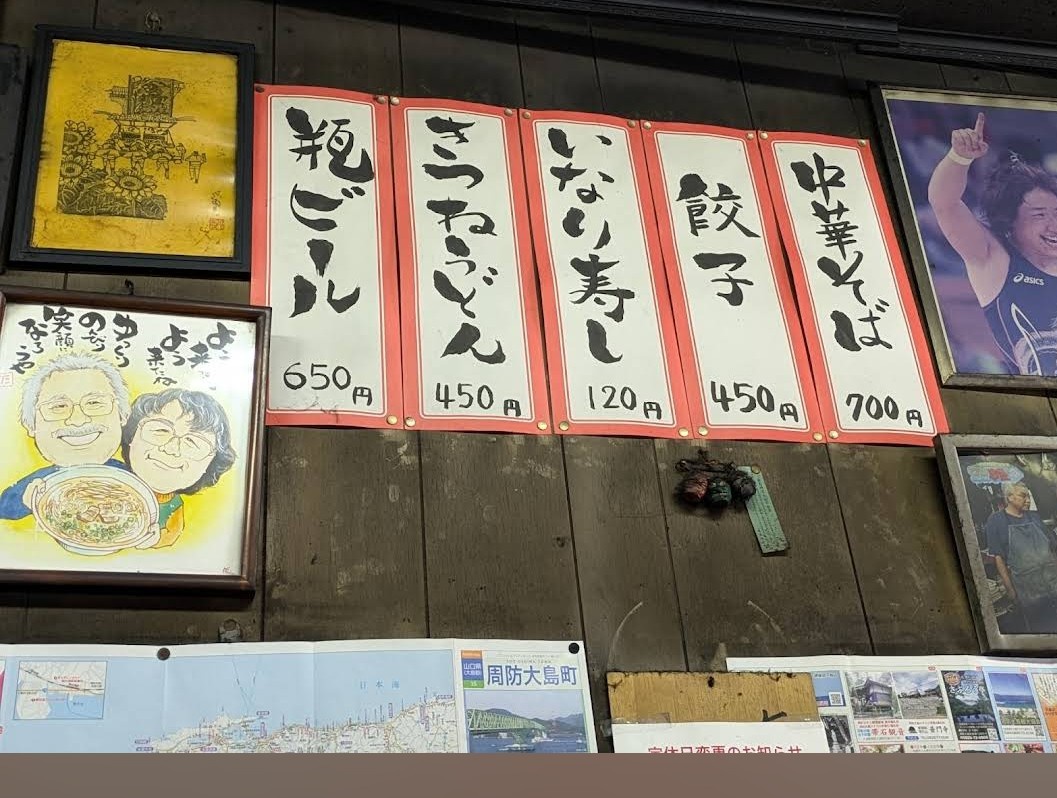 中華そば
700円
餃子
450円
いなり寿し
120円
きつねうどん
450円
瓶ビール
650円
よう
よう来たな
ゆっくり
のんびり
笑顔に
なろうや
asics
日本海
山口県
周防大島町
定休日変更のお知らせ
帯石観音
普門寺